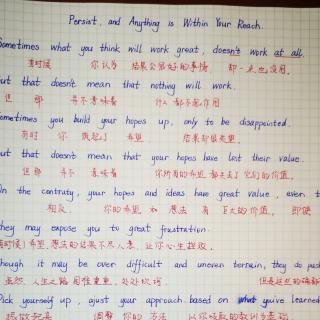 Persist, and Anything is Within Your Reach.
Sometimes what you think will work great, doesn't work at all.
有时候 你认为 结果会很好的事情 却一点也没用。
ut that doesn't mean that nothing will work.
但 那 并不意味着 什么都不起作用
ometimes you build your hopes up, only to be disappointed.
有时 你 燃起了 希望 结果却很失望。
ut that doesn't mean that your hopes have lost their value.
但 那 并不 意味着 你所有的希望都失去了它们的价值。
On the contraty, your hopes and ideas have great value, even t
相反, 你的希望 和 想法 有 巨大的价值, 即使
hey may expose you to great frustration.
有时候) 希望、想法的 结果不尽人意, 让你心生挫败。
hough it may be over difficult and uneven terrain, they do pus
虽然, 人生之路 困难重重、处处坎坷,
Pick yourself up , ajust your approach based on what you've learned
调整 你的 方法